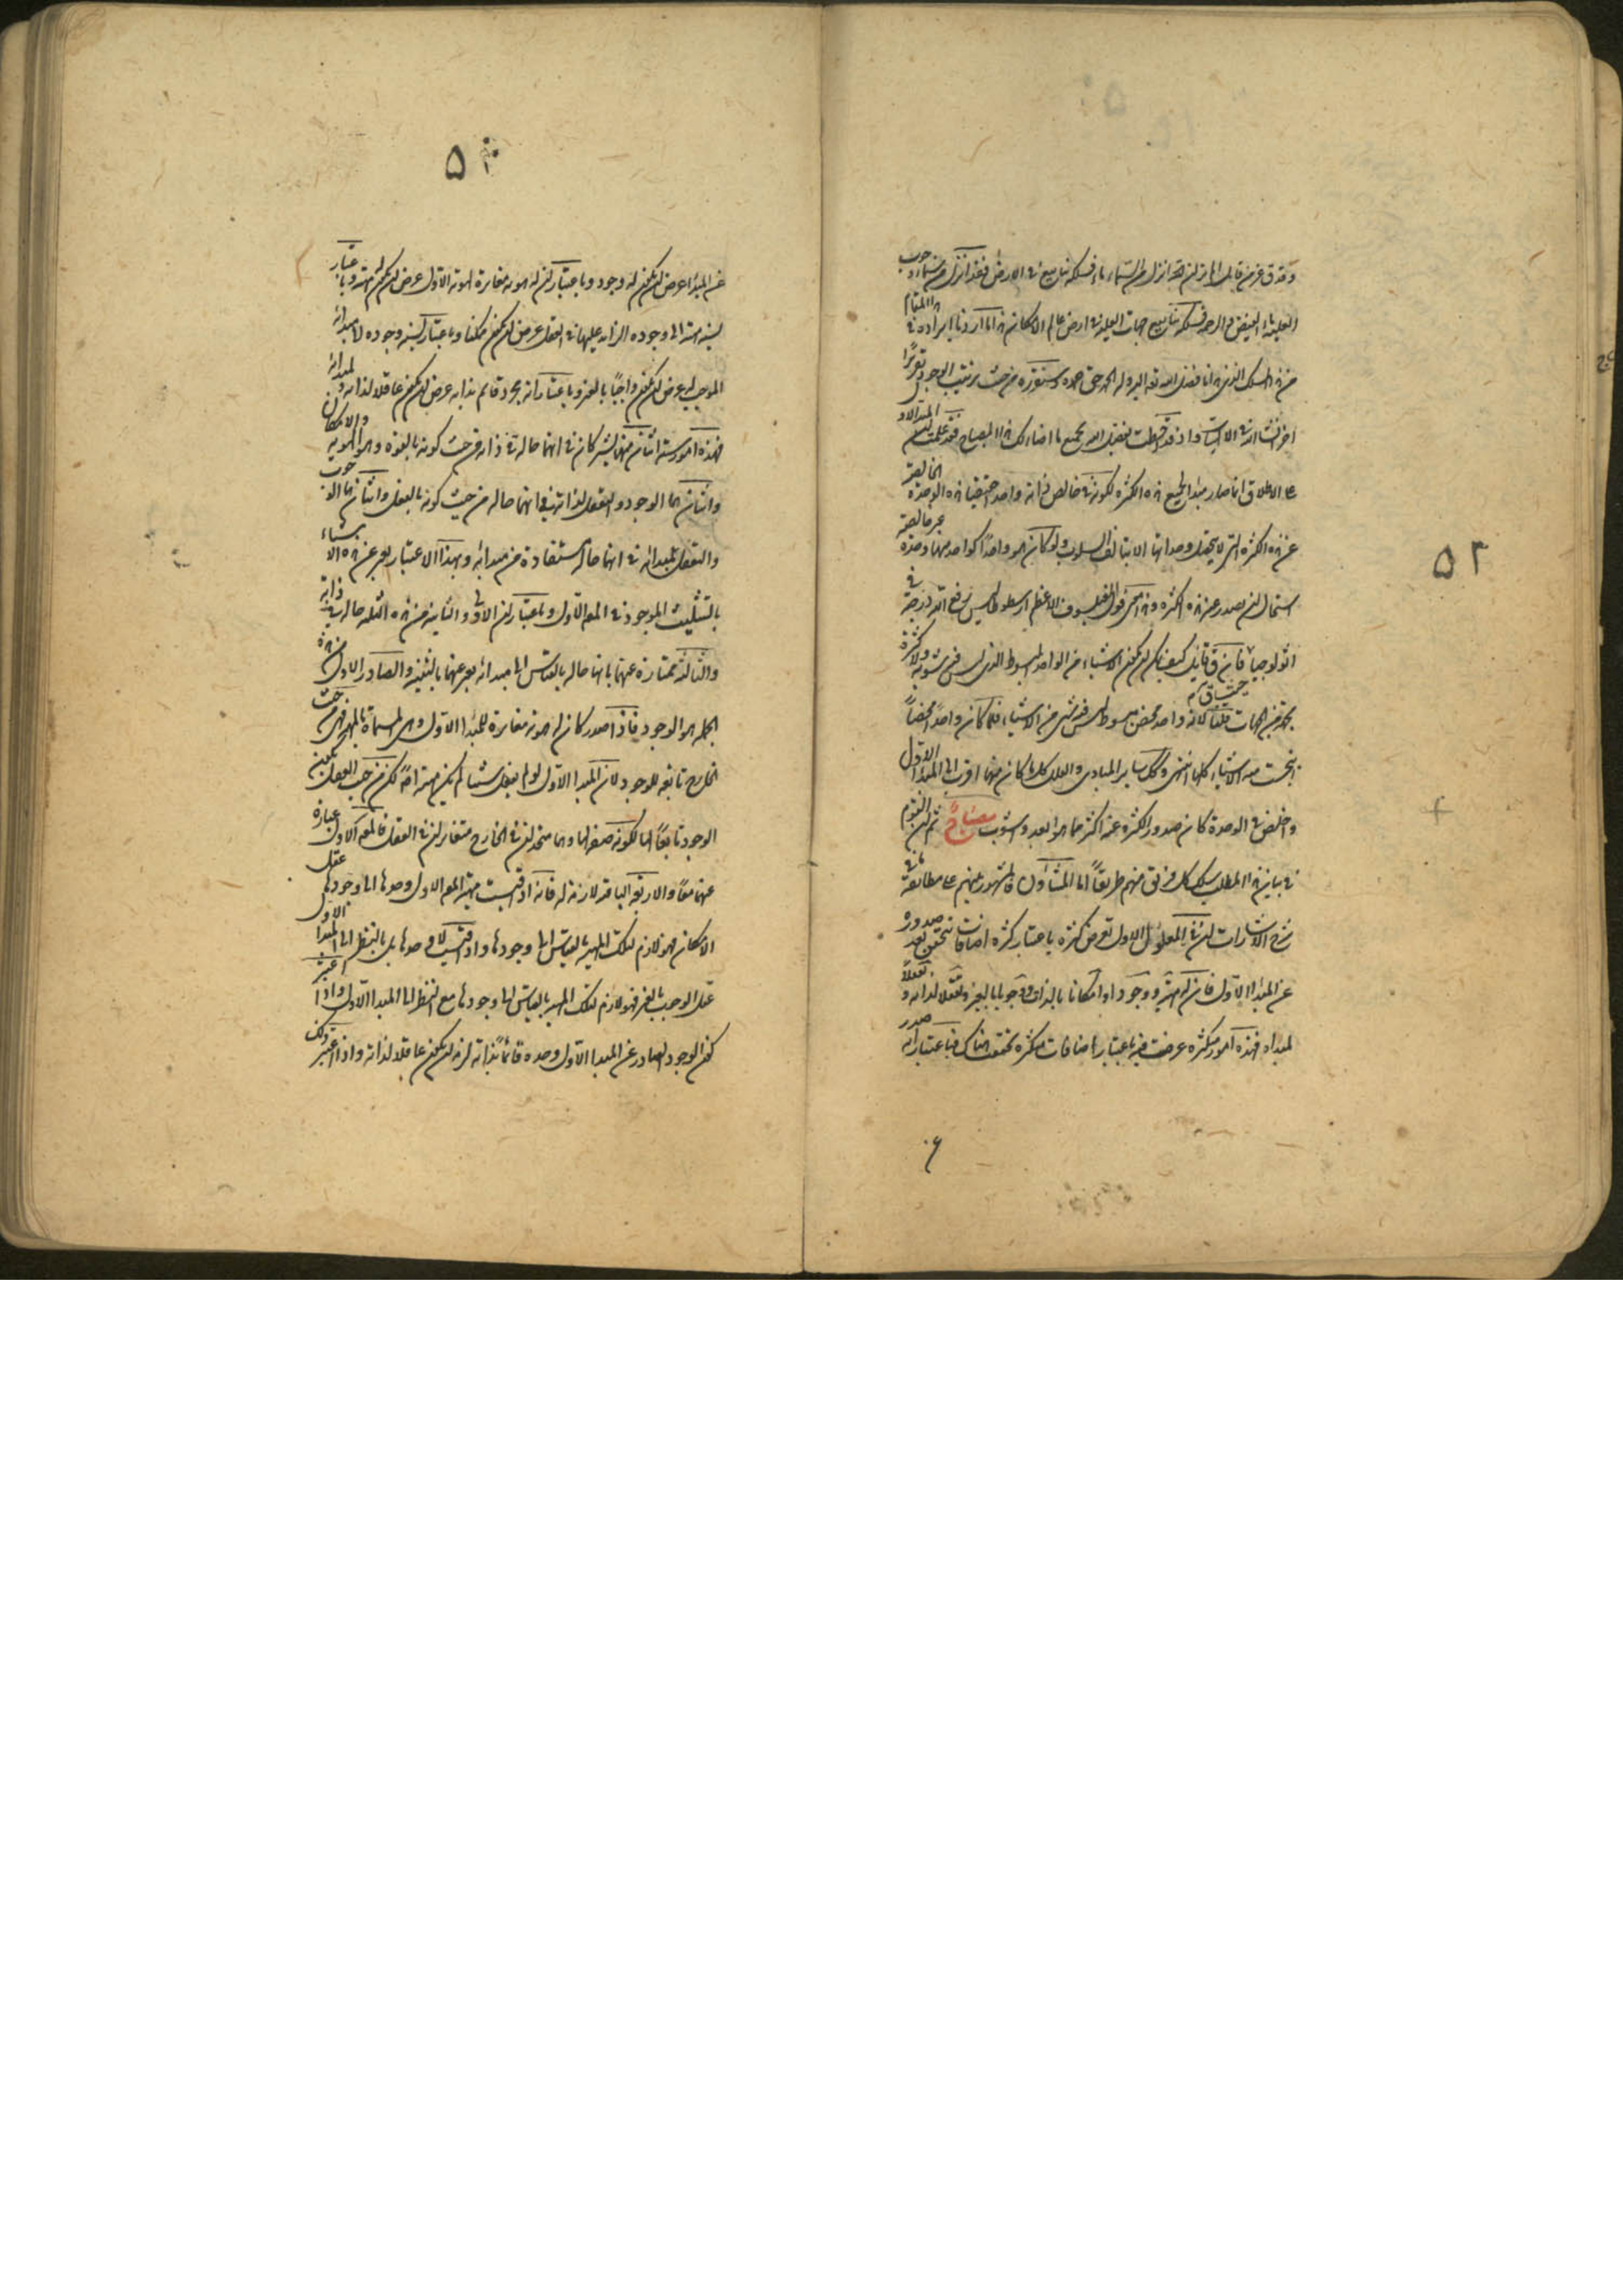 ۵۲
وقد قال عز من قائل الم تر ان الله انزل من السماء ماء فسلكه ينابيع في الارض فقد انزل من سماء وجوب
العلية ماء الفيض والرحمة فسلكه ينابيع جهات العلية في ارض عالم الامكان هذا ما اردنا ايراده في هذا المقام
من هذا المسلك الذي هدانا بفضل الله تعالى اليه وله الحمد حق حمده وسنقرره من حيث ترتيب الوجود تقريرا
اخر انشاء الله في الاثبات واذ قد احطت بفضل الله بجميع ما افادك هذا المصباح فقد علمت ان المبدا الاول
على الاطلاق انما صار مبدا لجميع هذه الكثرة لكونه في خالص ذاته واحدا حقيقيا هذه الوحدة الخالصة
عن هذه الكثرة التي لا يحصل وحداتها الا بتألف السلوب ولو كان هو واحدا كواحد منها وحدة غير خالصة
استحال ان يصدر عنه هذه الكثرة وهذا معنى قول الفيلسوف الاعظم ارسطوطاليس رفع الله درجته في
اثولوجيا فان قال قائل كيف يمكن ان يكون الاشياء من الواحد المبسوط الذي ليس فيه ثنوية ولا كثرة
بجهة من الجهات قلنا لانه واحد محض مبسوط ليس فيه شيء من الاشياء فلما كان واحدا محضا
انبجست منه الاشياء كلها انتهى وكذلك ساير المبادي والعلل كلما كان منها اقرب الى المبدا الاول
واخلص في الوحدة كان صدور الكثرة عنه اكثر مما هو ابعد واشوب مصباح ثم ان القوم
في بيان هذا المطلب سلك كل فريق منهم طريقا اما المشاؤن فالمشهور منهم على مطابقة ما في
شرح الاشارات ان في المعلول الاول تعرض كثرة باعتبار كثرة اضافات تتحقق بعد صدوره
عن المبدا الاول فان له مهية ووجودا وامكانا بالذات ووجوبا بالغير وتعقلا لذاته وتعقلا
لمبدئه فهذه امور متكثرة عرضت فيه باعتبار اضافات متكثرة تحققت هناك فباعتبار انه صدر
۵۳
عن المبدا عرض ان يكون له وجود وباعتبار ان له هوية مغايرة لهوية الاول عرض ان يكون له مهية وباعتبار
نسبة مهيته الى وجوده الزايد عليها في العقل عرض ان يكون ممكنا وباعتبار نسبة وجوده الى مبدائه
الموجب له عرض ان يكون واجبا بالغير وباعتبار انه مجرد قائم بذاته عرض ان يكون عاقلا لذاته ولمبدائه
فهذه امور ستة اثنان منها يشتركان في انهما حاله في ذاته من حيث كونه بالقوة وهما الهوية والامكان
واثنان هما الوجود والتعقل لذاته في انهما حاله من حيث كونه بالفعل واثنان هما الوجوب
والتعقل لمبدائه في انهما حاله المستفادة من مبدائه وبهذا الاعتبار يعبر عن هذه الاشياء
بالتثليث الموجود في المع الاول وباعتبار ان الاولى والثانية من هذه الثلثة حاله في ذاته
والثالثة ممتازة عنهما بانها حاله بالقياس الى مبدائه يعبر عنها بالتثنية والصادر الاول من هذه
الجملة هو الوجود فاذا صدر كان له هوية مغايرة للمبدا الاول وهي المسماة بالمهية فهي من حيث
الخارج تابعة للوجود لان المبدا الاول لو لم يفعل شيئا لم يكن مهية اصلا لكن من حيث العقل يكون
الوجود تابعا لها لكونه صفة لها وهما متحدان في الخارج متغايران في العقل فالمع الاول عبارة
عنهما معا والاربعة الباقية لازمة له فانه اذا قيست مهية المع الاول وحدها الى وجودها عقل
الامكان فهو لازم لتلك المهية بالقياس الى وجودها واذا قيست لا وحدها بل بالنظر الى المبدا الاول
عقل الوجوب بالغير فهو لازم لتلك المهية بالقياس الى وجودها مع النظر الى المبدا الاول واذا اعتبر
كون الوجود الصادر عن المبدا الاول وحده قائما بذاته لزمه ان يكون عاقلا لذاته واذا اعتبر ذلك